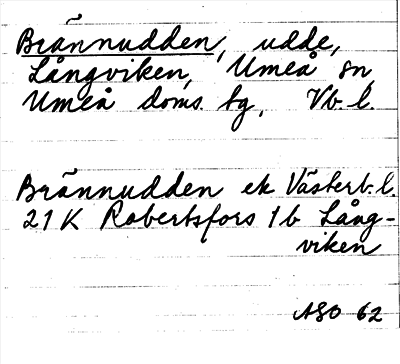 Brännudden, udde,
Långviken, Umeå sn,
Umeå doms. tg, Vb. l.
Brännudden ek Västerb. l.
21 K Robertsfors 1 b Lång-
viken
ASO 62